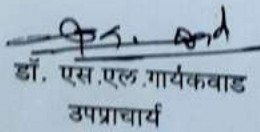 डॉ. एस.एल.गायकवाड
उपप्राचार्य